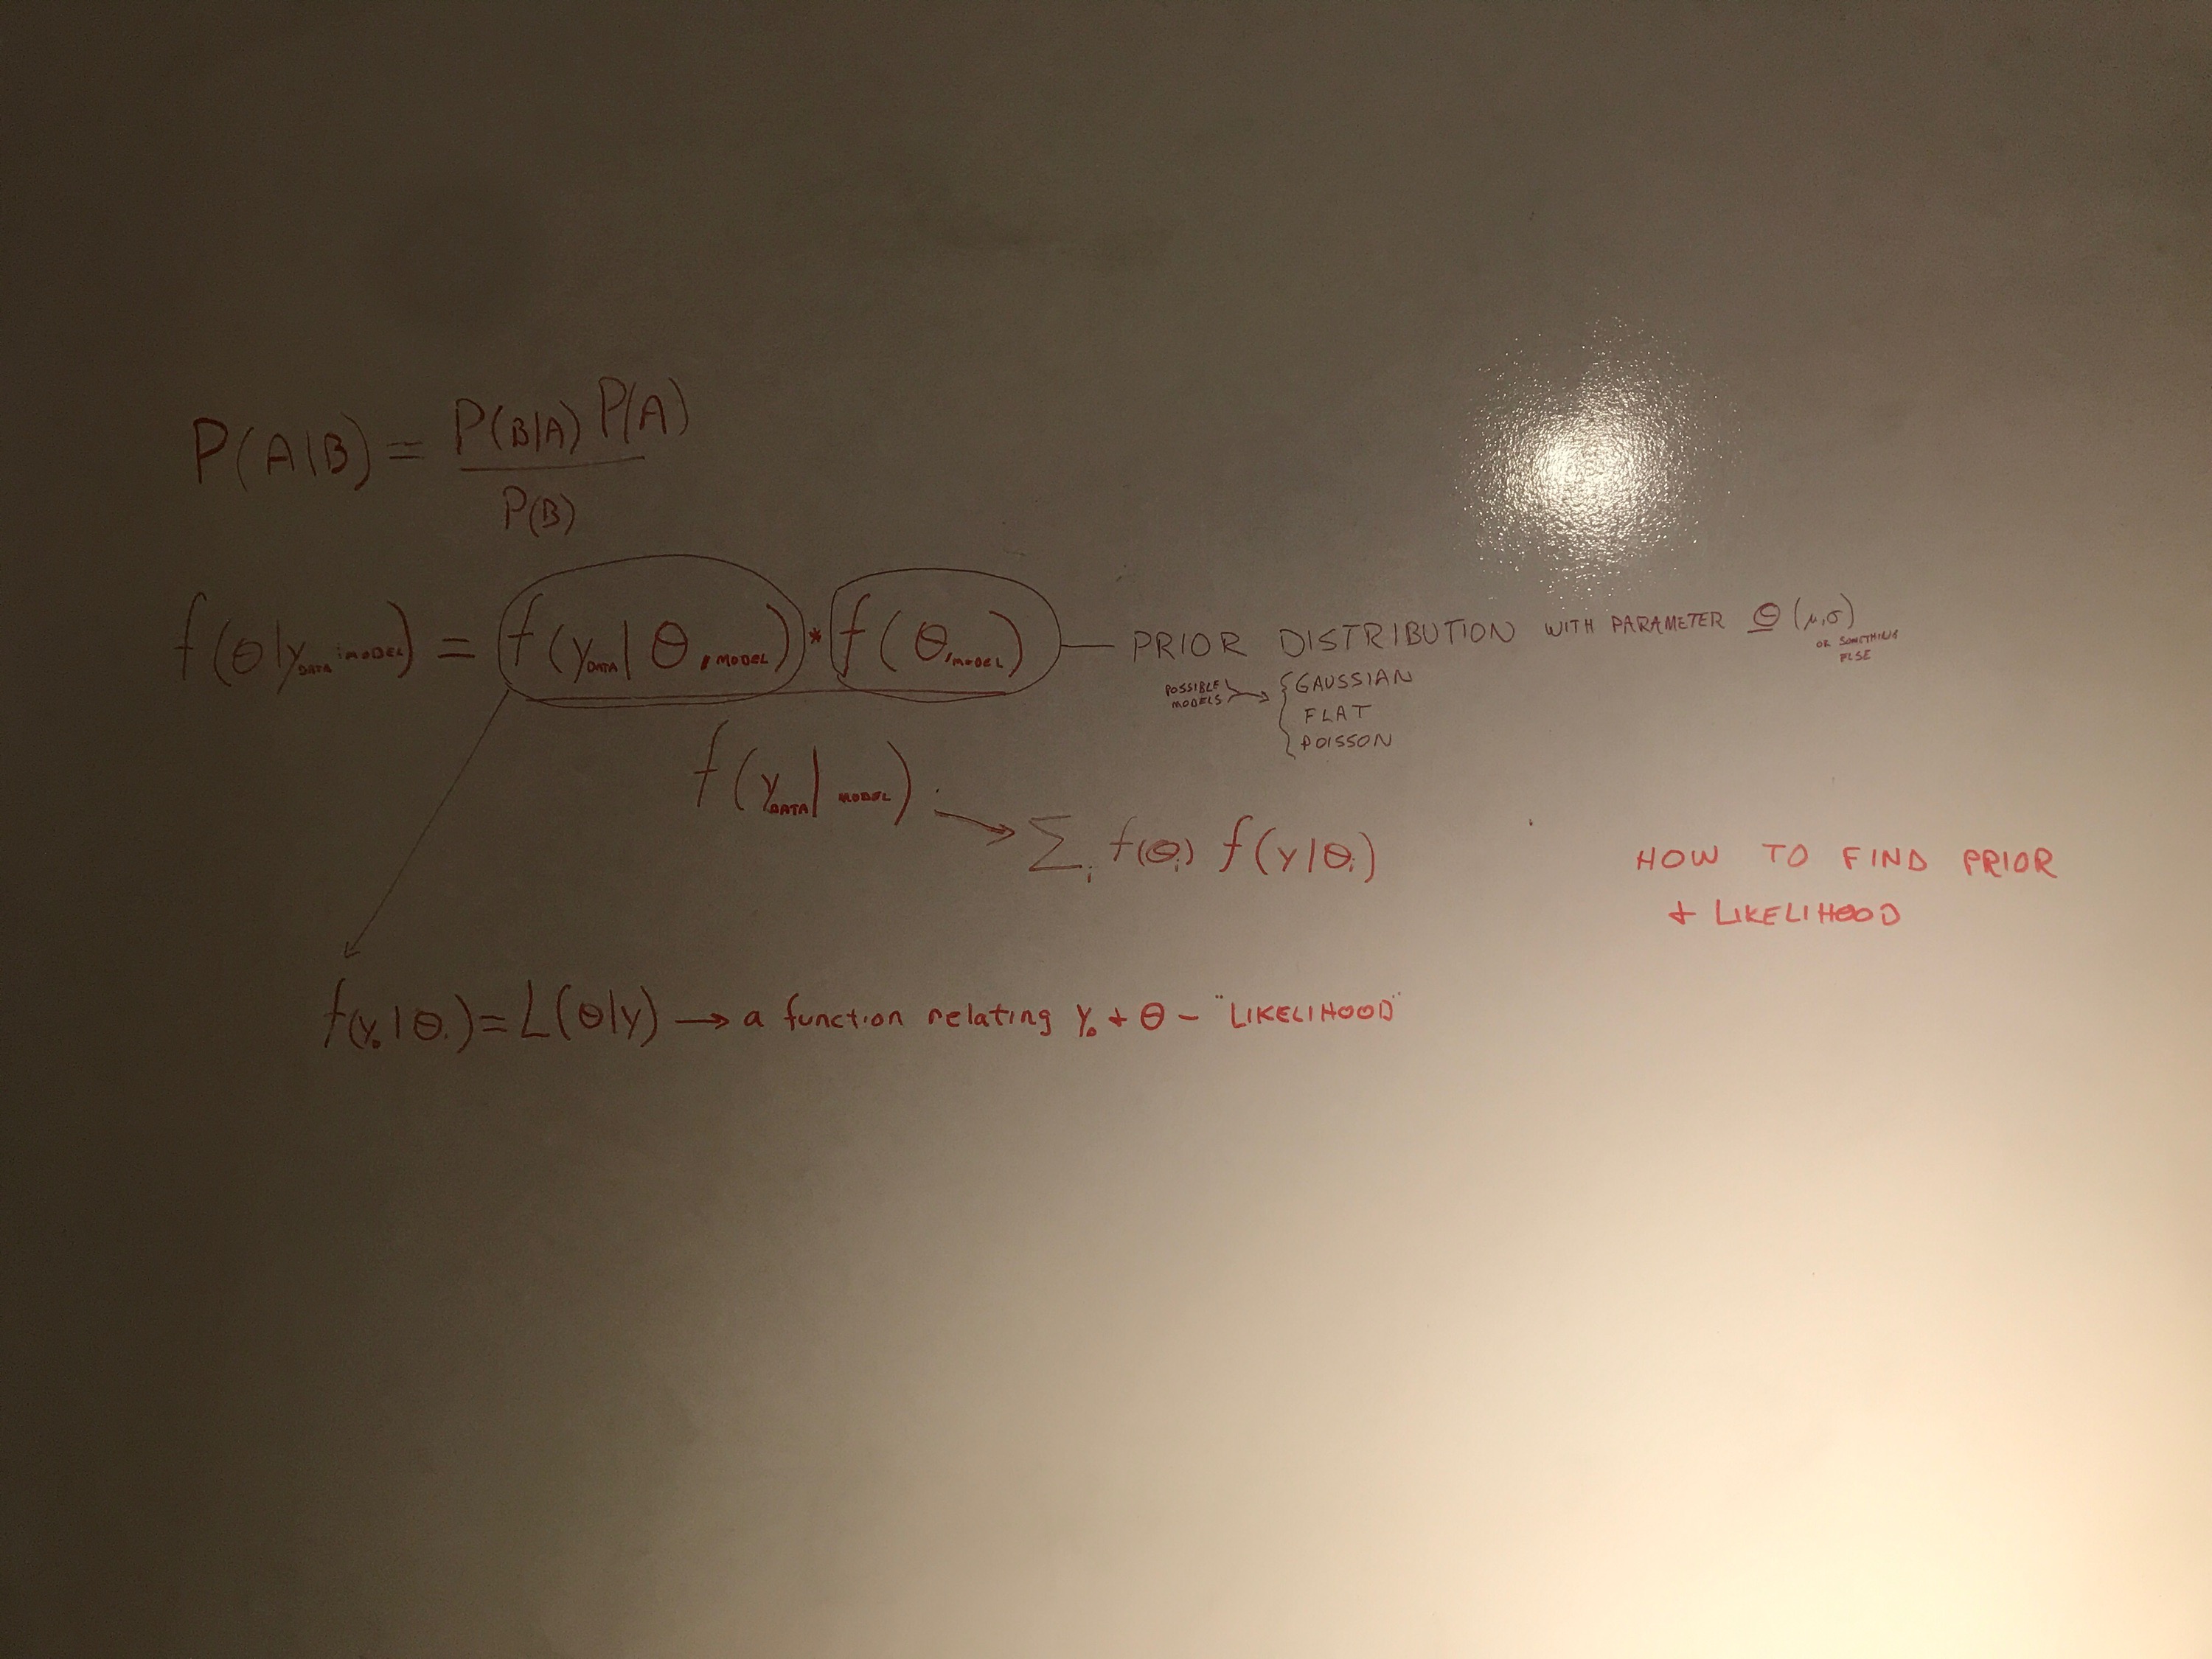 P(A|B) = P(B|A) P(A)
P(B)
f(θ|y DATA, MODEL) = f(y DATA | θ, MODEL) * f(θ, MODEL) — PRIOR DISTRIBUTION WITH PARAMETER θ (μ,σ)
OR SOMETHING
ELSE
POSSIBLE
MODELS → { GAUSSIAN
FLAT
POISSON
f(y DATA | MODEL)
→ Σi f(θi) f(y|θi)
HOW TO FIND PRIOR
+ LIKELIHOOD
f(y₀|θi) = L(θ|y) → a function relating y₀ + θ – "LIKELIHOOD"